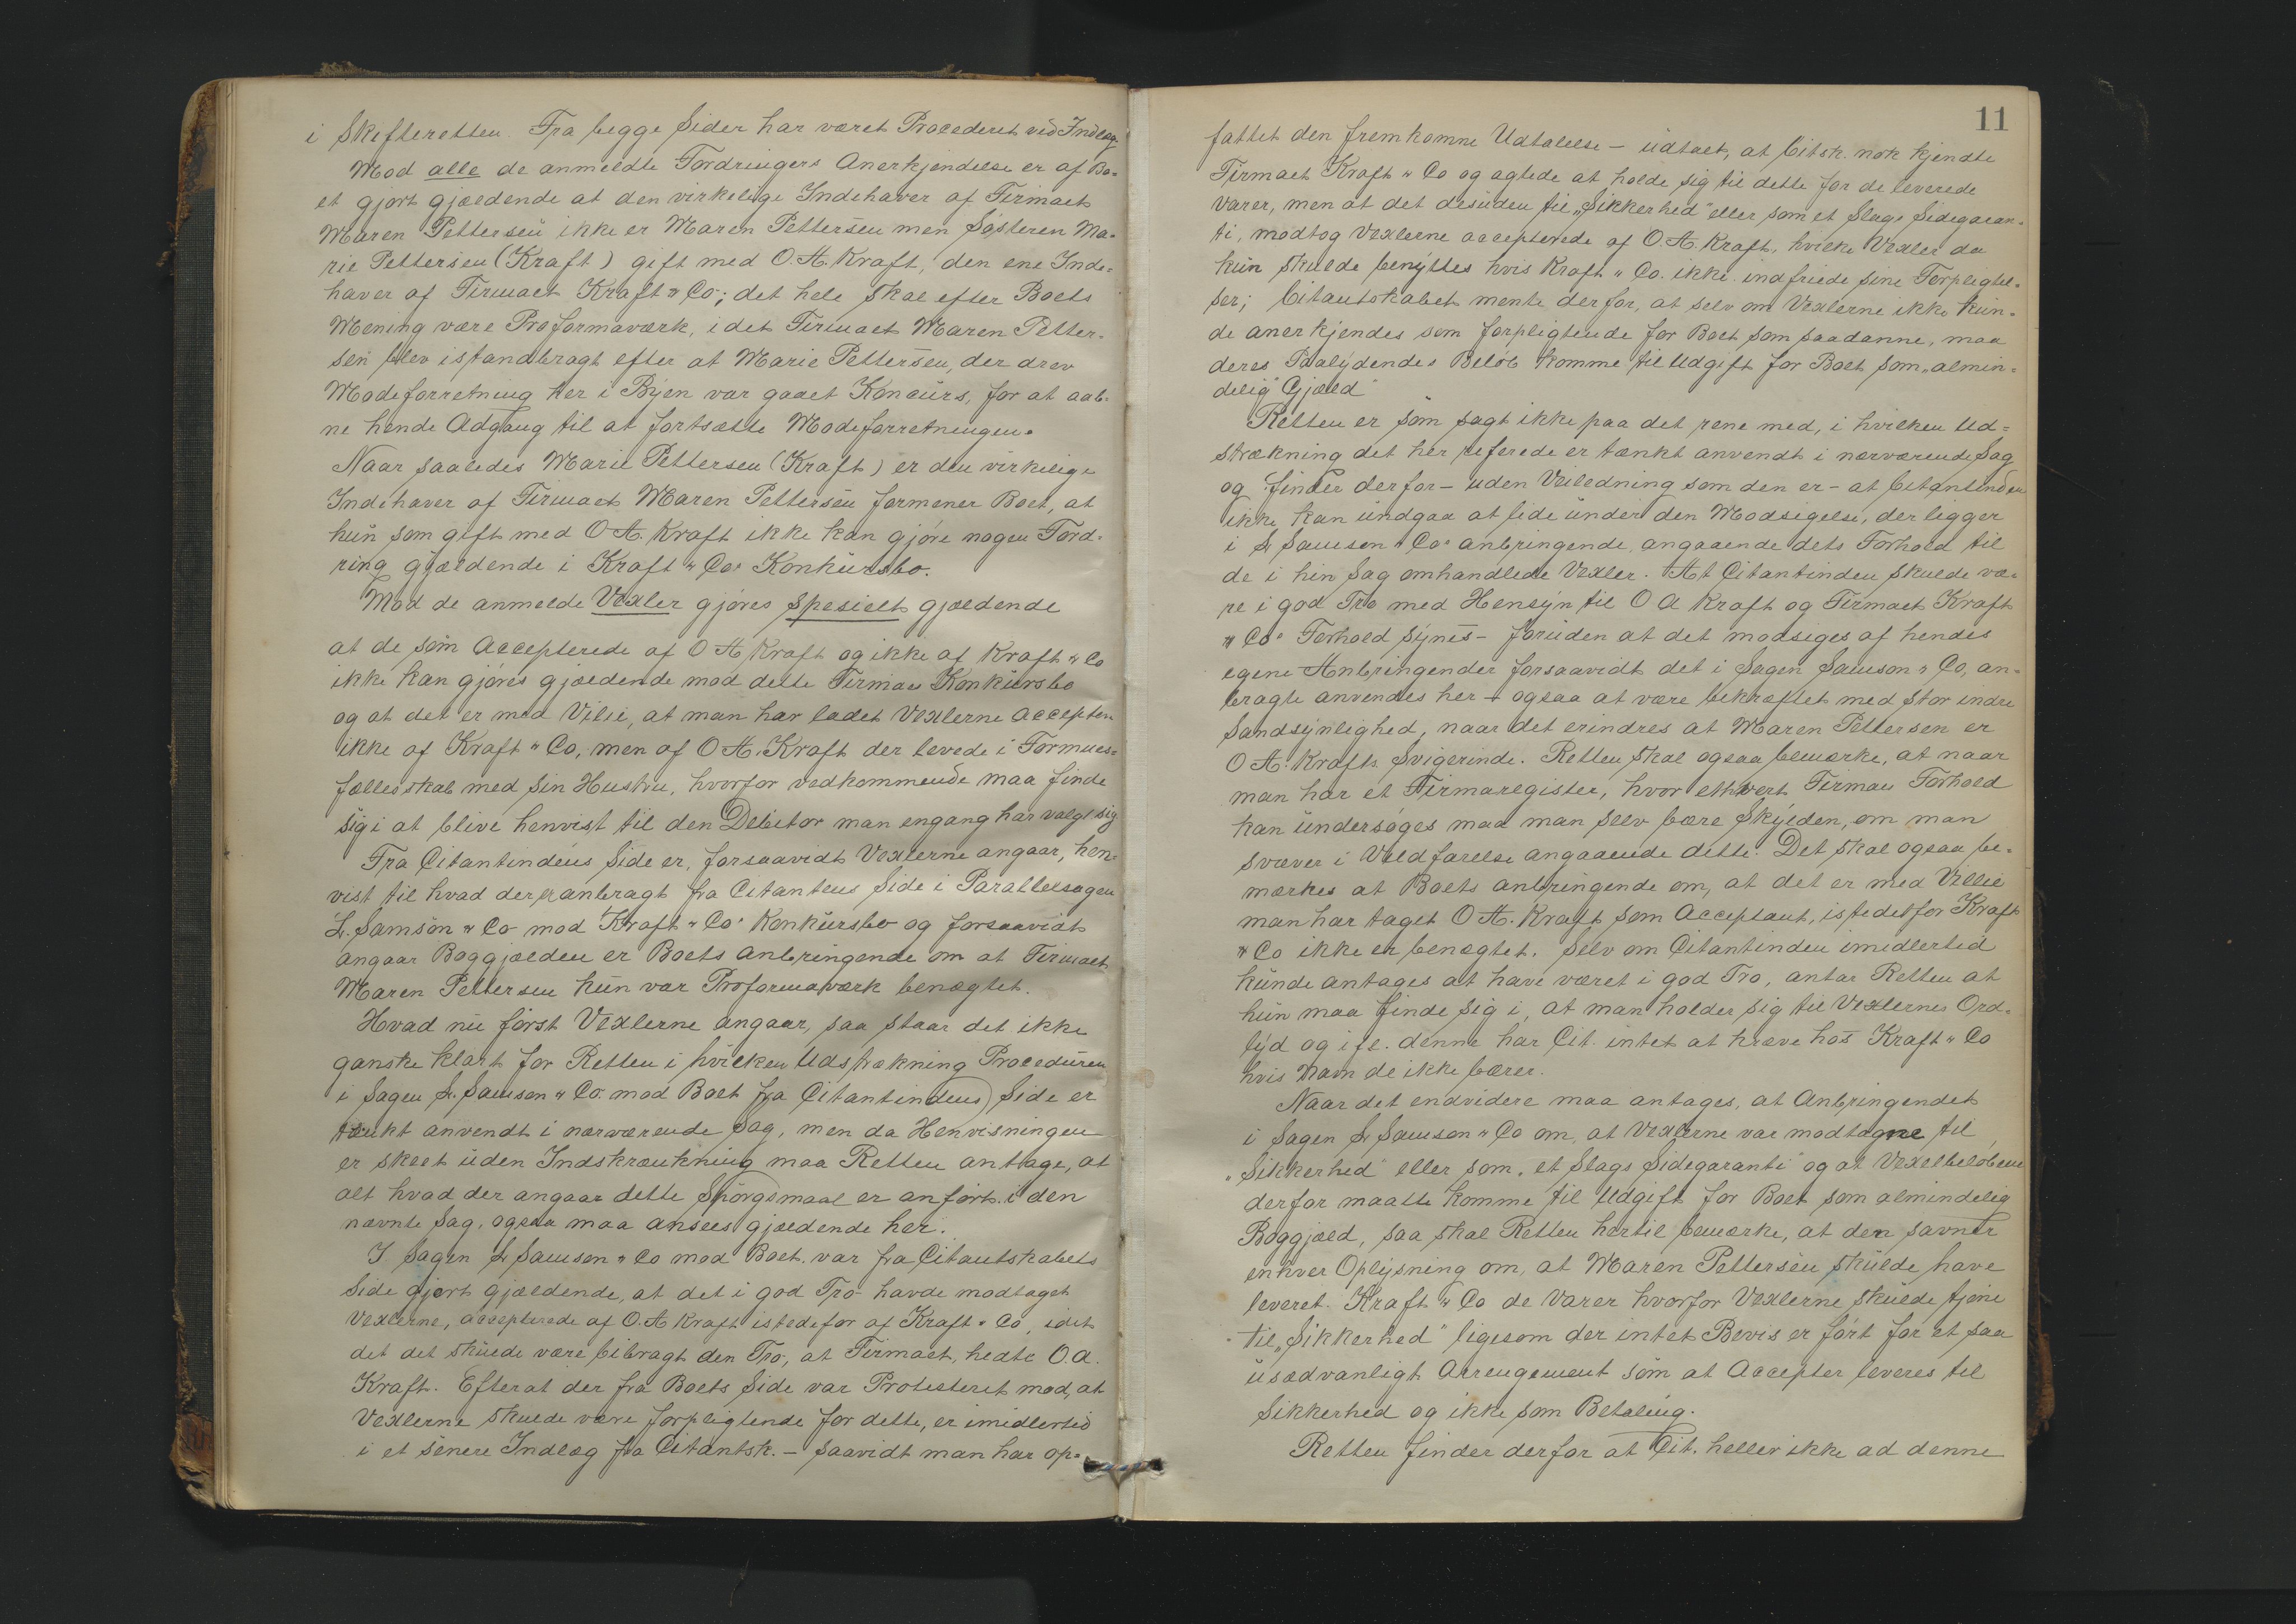 i Skifteretten. Fra begge Sider har været Procederet ved Indlæg.
Mod alle de anmeldte Fordringers Anerkjendelse er af Bo-
et gjort gjældende at den virkelige Indehaver af Firmaet
Maren Pettersen ikke er Maren Pettersen men Søsteren Ma-
rie Pettersen (Kraft) gift med O. A. Kraft, den ene Inde-
haver af Firmaet Kraft & Co.; det hele skal efter Boets
Mening være Proformaværk, idet Firmaet Maren Petter-
sen blev istandbragt efter at Marie Pettersen, der drev
Modeforretning her i Byen var gaaet Koncurs, for at aab-
ne hende Adgang til at fortsætte Modeforretningen.
Naar saaledes Marie Pettersen (Kraft) er den virkelige
Indehaver af Firmaet Maren Pettersen formener Boet, at
hun som gift med O A. Kraft ikke kan gjøre nogen Ford-
ring gjældende i Kraft & Cos Konkursbo.
Mod de anmelde Vexler gjøres spesielt gjældende
at de som Accepterede af O A Kraft og ikke af Kraft & Co
ikke kan gjøres gjældende mod dette Firmas Konkursbo
og at det er med Vilie, at man har ladet Vexlerne accepten
ikke af Kraft & Co, men af O A. Kraft der levede i Formues-
fællesskab med sin Hustru, hvorfor vedkommende maa finde
sig i at blive henvist til den Debitor man engang har valgt sig
Fra Citantindens Side er, forsaavidt Vexlerne angaar, hen-
vist til hvad der er anbragt fra Citantens Side i Parallelsagen
L. Samson & Co mod Kraft & Cos Konkursbo og forsaavidt
angaar Boggjælden er Boets anbringende om at Firmaet
Maren Pettersen kun var Proformaværk benægtet.
Hvad nu først Vexlerne angaar, saa staar det ikke
ganske klart for Retten i hvilken Udstrækning Proceduren
i Sagen L. Samson & Co. mod Boet fra Citantindens Side er
tænkt anvendt i nærværende Sag, men da Henvisningen
er skeet uden Indskrænkning maa Retten antage, at
alt hvad der angaar dette Spørgsmaal er anført i den
nævnte Sag, ogsaa maa ansees gjældende her.
I Sagen L Samson & Co mod Boet var fra Citantskabets
Side gjort gjældende, at det i god Tro havde modtaget
Vexlerne, accepterede af O. A Kraft istedefor af Kraft & Co, idet
det det skulde være bibragt den Tro, at Firmaet hedte O. A.
Kraft. Efterat der fra Boets Side var Protesteret mod, at
Vexlerne skulde være forpligtende for dette, er imidlertid
i et senere Indlæg fra Citantsk. - saavidt man har op-
11
fattet den fremkomne Udtalelse - udtalt, at Citsk. nok kjendte
Firmaet Kraft & Co og agtede at holde sig til dette for de leverede
varer, men at det desuden til "Sikkerhed" eller som et Slags Sidegaran-
ti, modtog Vexlerne accepterede af O. A. Kraft, hvilke Vexler da
kun skulde benyttes hvis Kraft & Co. ikke indfriede sine Forpligtel-
ser; Citantskabet mente derfor, at selv om Vexlerne ikke kun-
de anerkjendes som forpligtende for Boet som saadanne, maa
deres Paalydendes Beløb komme til Udgift for Boet som "almin-
delig Gjæld"
Retten er som sagt ikke paa det rene med, i hvilken Ud-
strækning det her referede er tænkt anvendt i nærværende Sag
og finder derfor - uden Veiledning som den er - at Citantinden
ikke kan undgaa at lide under den Modsigelse, der ligger
i L Samson & Cos anbringende angaaende dets Forhold til
de i hin Sag omhandlede Vexler. At Citantinden skulde væ-
re i god Tro med Hensyn til O A Kraft og Firmaet Kraft
& Cos Forhold synes - foruden at det modsiges af hendes
egene Anbringender forsaavidt det i Sagen Samson & Co, an-
bragte anvendes her - ogsaa at være bekræftet med stor indre
Sandsynlighed, naar det erindres at Maren Pettersen er
O A. Krafts Svigerinde. Retten skal ogsaa bemærke, at naar
man har et Firmaregister, hvor ethvert Firmas Forhold
kan undersøges maa man selv bære Skylden, om man
svæver i Vildfarelse angaaende dette. Det skal ogsaa be-
mærkes at Boets anbringende om, at det er med Villie
man har taget O A. Kraft som Acceptant, istedetfor Kraft
& Co ikke er benægtet. Selv om Citantinden imidlertid
kunde antages at have været i god Tro, antar Retten at
hun maa finde sig i, at man holder sig til Vexlernes Ord-
lyd og ifl. denne har Cit. intet at kræve hos Kraft & Co
hvis Navn de ikke bærer.
Naar det endvidere maa antages, at Anbringendet
i Sagen L Samson & Co om, at Vexlerne var modtagne til
"Sikkerhed" eller som "et Slags Sidegaranti" og at Vexelbeløbene
derfor maatte komme til Udgift for Boet som almindelig
Boggjæld, saa skal Retten hertil bemærke, at den savner
enhver Oplysning om, at Maren Pettersen skulde have
leveret Kraft & Co de Varer hvorfor Vexlerne skulde tjene
til "Sikkerhed" ligesom der intet Bevis er ført for et saa
usædvanligt Arrengement som at Accepter leveres til
Sikkerhed og ikke som Betaling.
Retten finder derfor at Cit. heller ikke ad denne